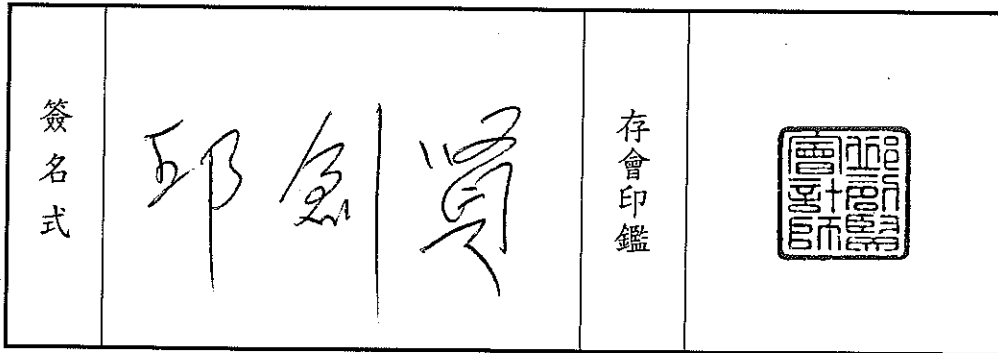 簽名式
邱創賢
存會印鑑
邱創賢
會計師